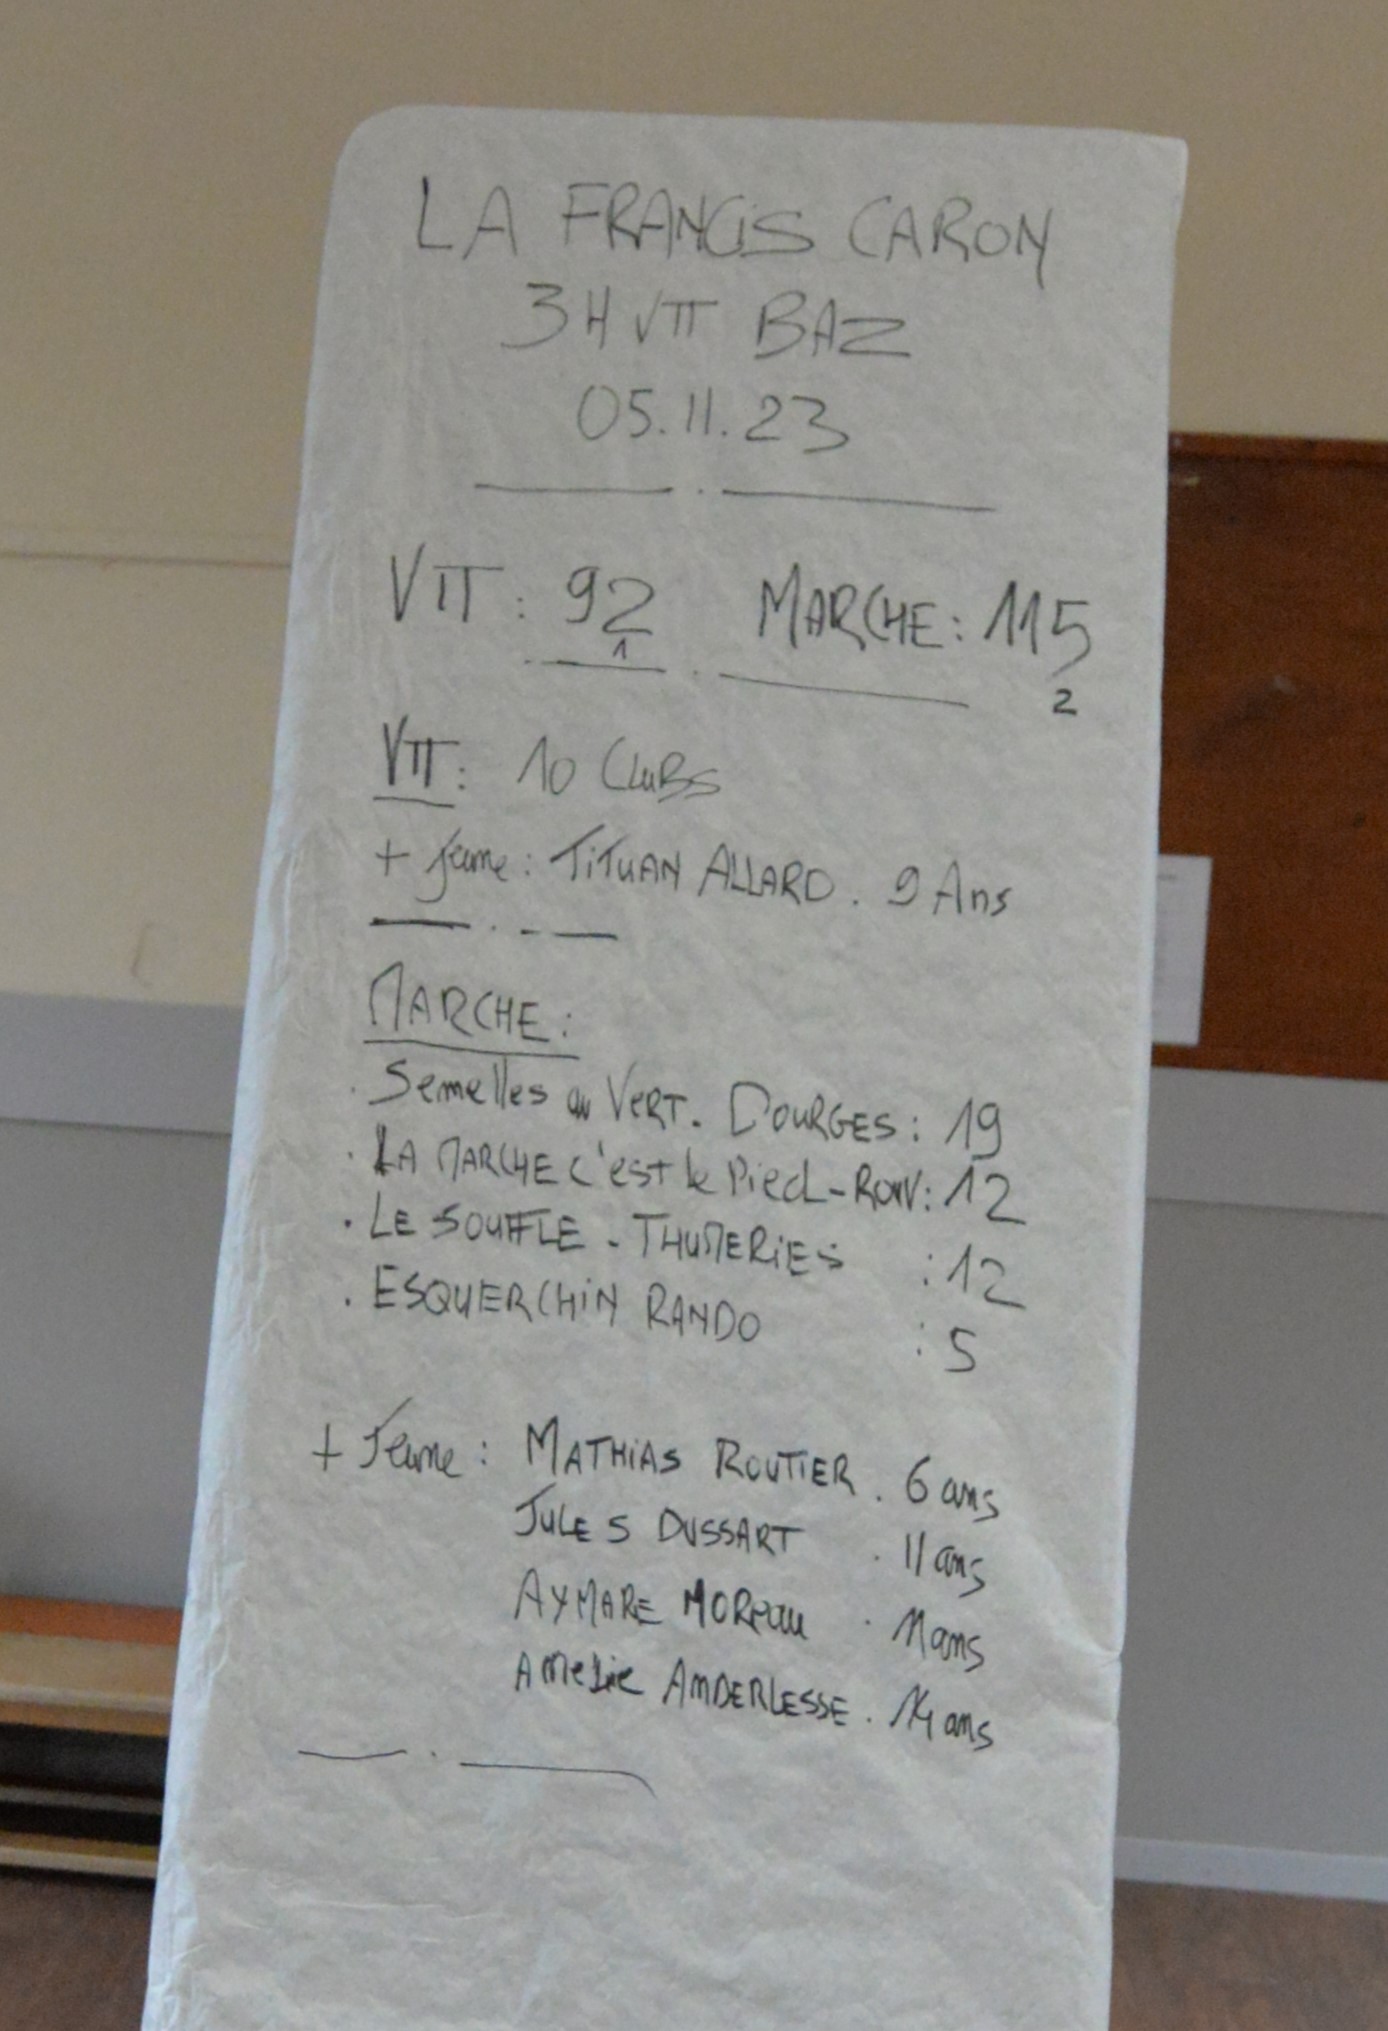 LA FRANCIS CARON
3H VTT BAZ
05.11.23
VTT : 92 MARCHE : 115
1 2
VTT : 10 CLUBS
+ jeune : TiTUAN ALLARD . 9 Ans
MARCHE :
. Semelles au VERT . DOURGES : 19
. LA MARCHE c'est le Pied - ROUV : 12
. LE SOUFFLE - THUMERiES : 12
. ESQUERCHiN RANDO : 5
+ Jeune : MATHiAS ROUTiER . 6 ans
JULES DUSSART . 11 ans
AYMARE MOReau . 11 ans
AMeLie ANDERLESSE . 14 ans